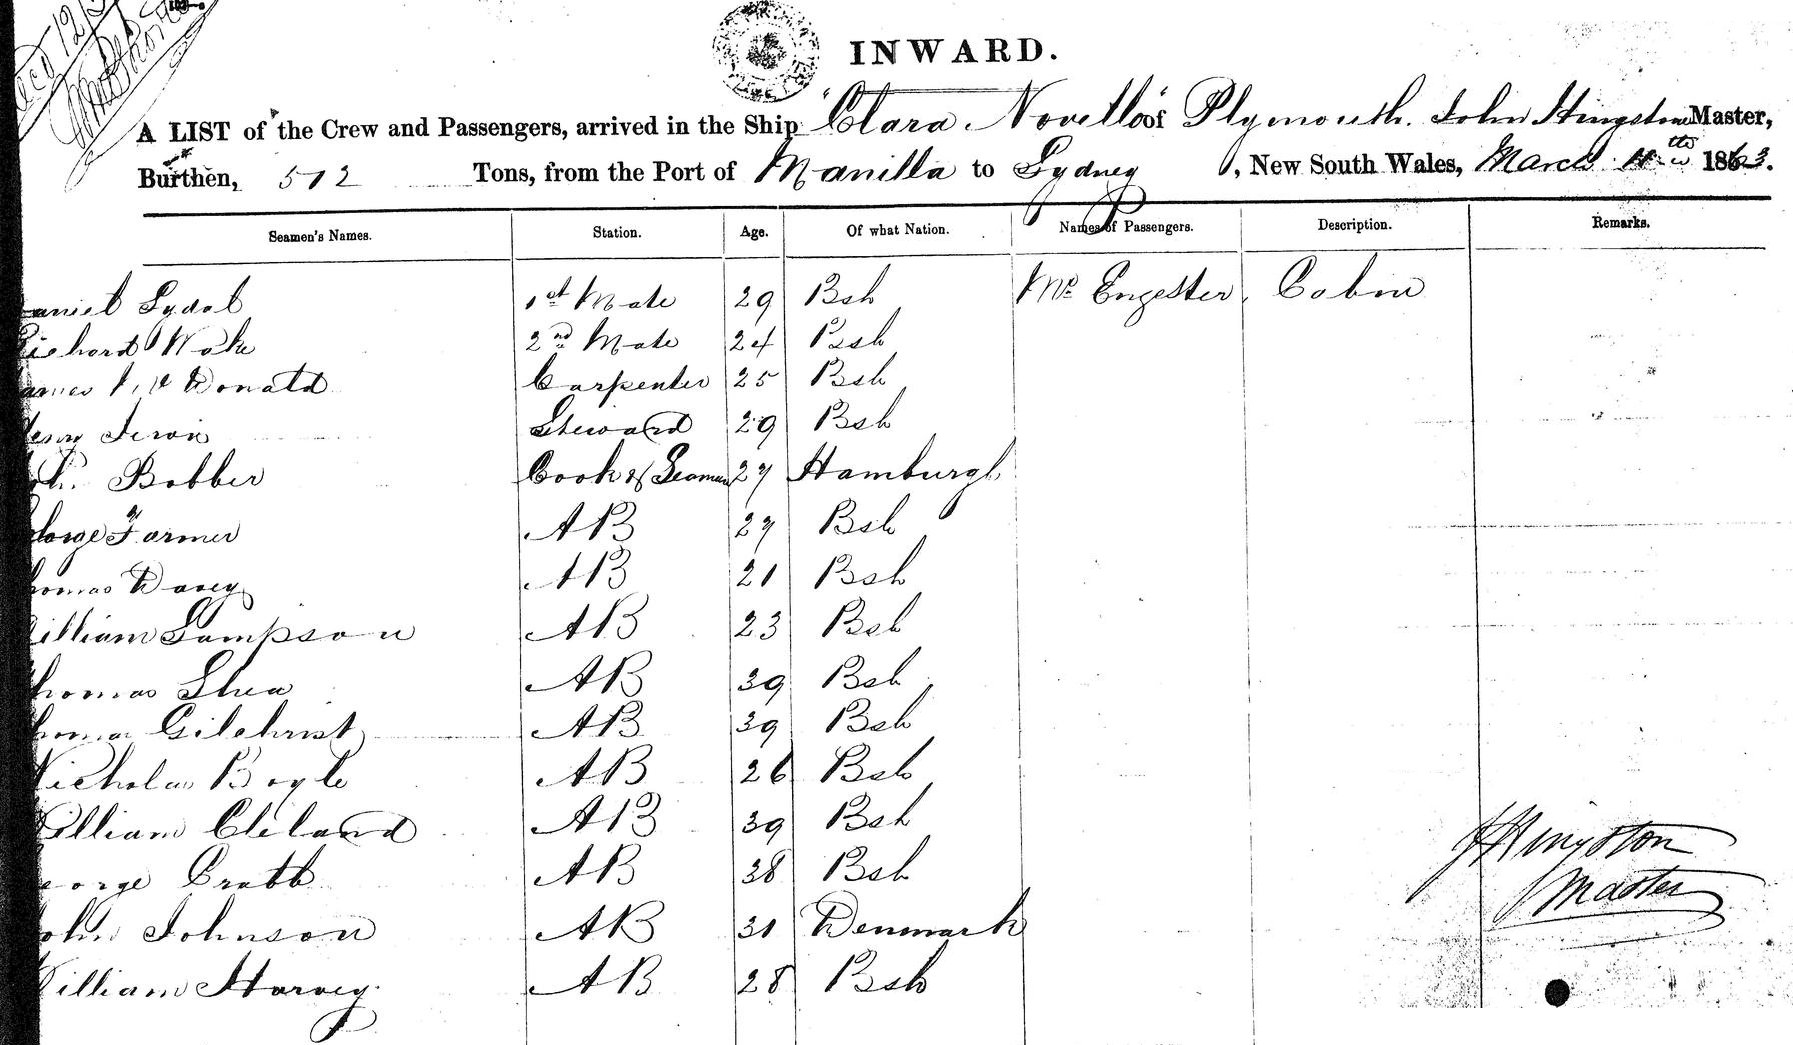 INWARD.
A LIST of the Crew and Passengers, arrived in the Ship "Clara Novello" of Plymouth. John Hingston Master,
Burthen, 512 Tons, from the Port of Manilla to Sydney, New South Wales, March 11th 1863.
Seamen's Names. Station. Age. Of what Nation. Names of Passengers. Description. Remarks.
aniel Sydal 1st Mate 29 Bsh Mr Engester, Cabin
Richard Wake 2nd Mate 24 Bsh
ames Donald Carpenter 25 Bsh
Henry Steward 29 Bsh
Bobber Cook & Seaman 27 Hamburgh
George Farmer AB 27 Bsh
homas Davey AB 21 Bsh
William Sampson AB 23 Bsh
Thomas Shea AB 39 Bsh
Thomas Gilchrist AB 39 Bsh
Nicholas Boyle AB 26 Bsh
William Cleland AB 39 Bsh
eorge Crabb AB 38 Bsh
John Johnson AB 31 Denmark
William Harvey AB 28 Bsh
J Hingston
Master